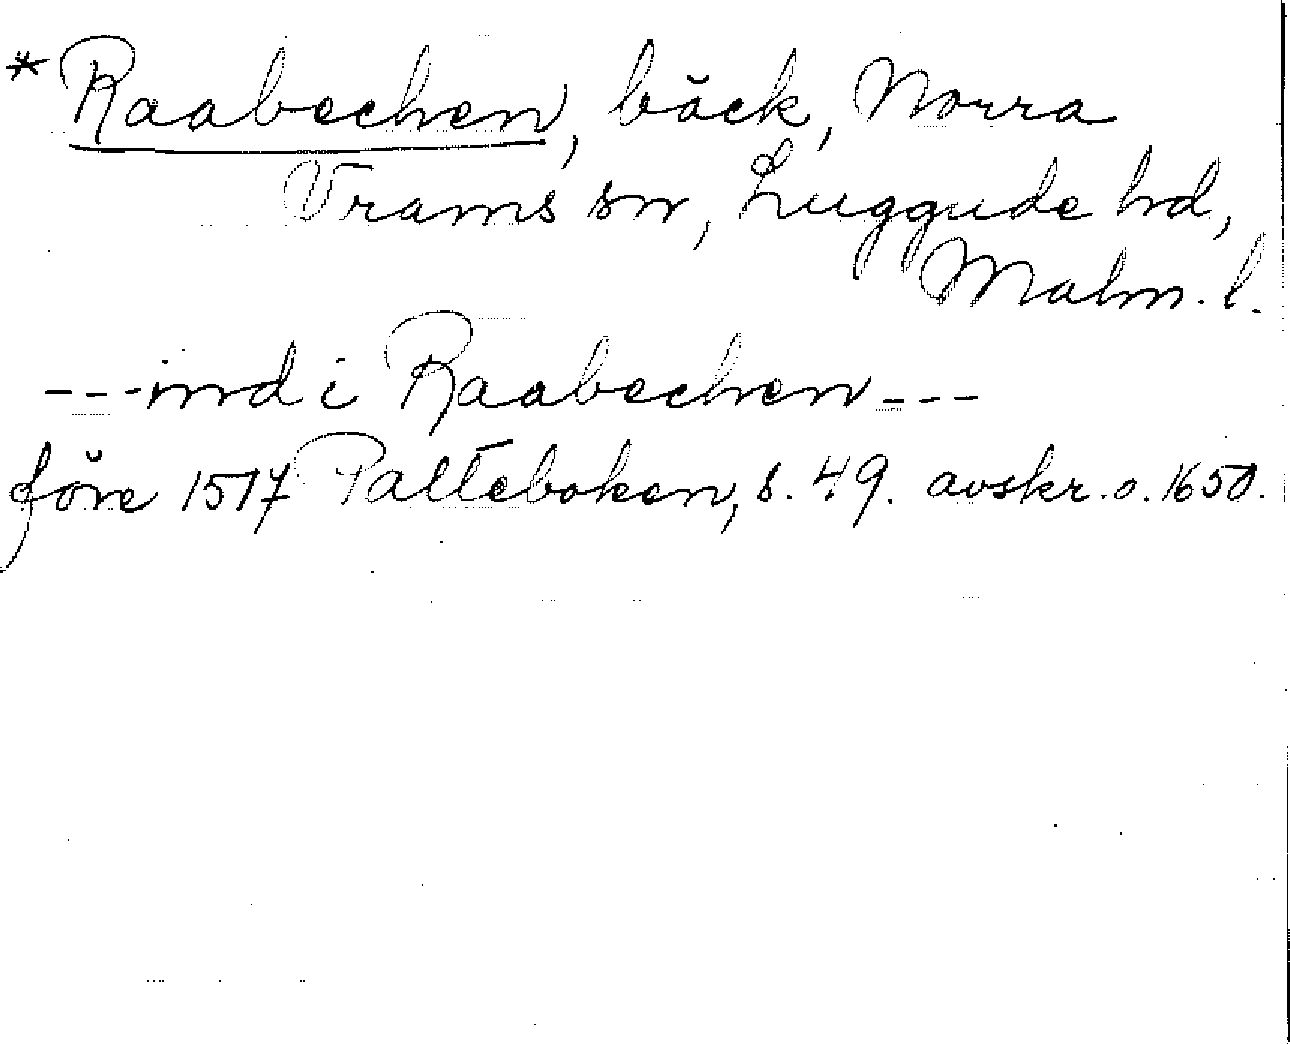 * Raabechen, bäck, Norra
Vrams sn, Luggude hd,
Malm. l.
---ind i Raabechen---
före 1517 Palteboken, s. 49. avskr. o. 1650.